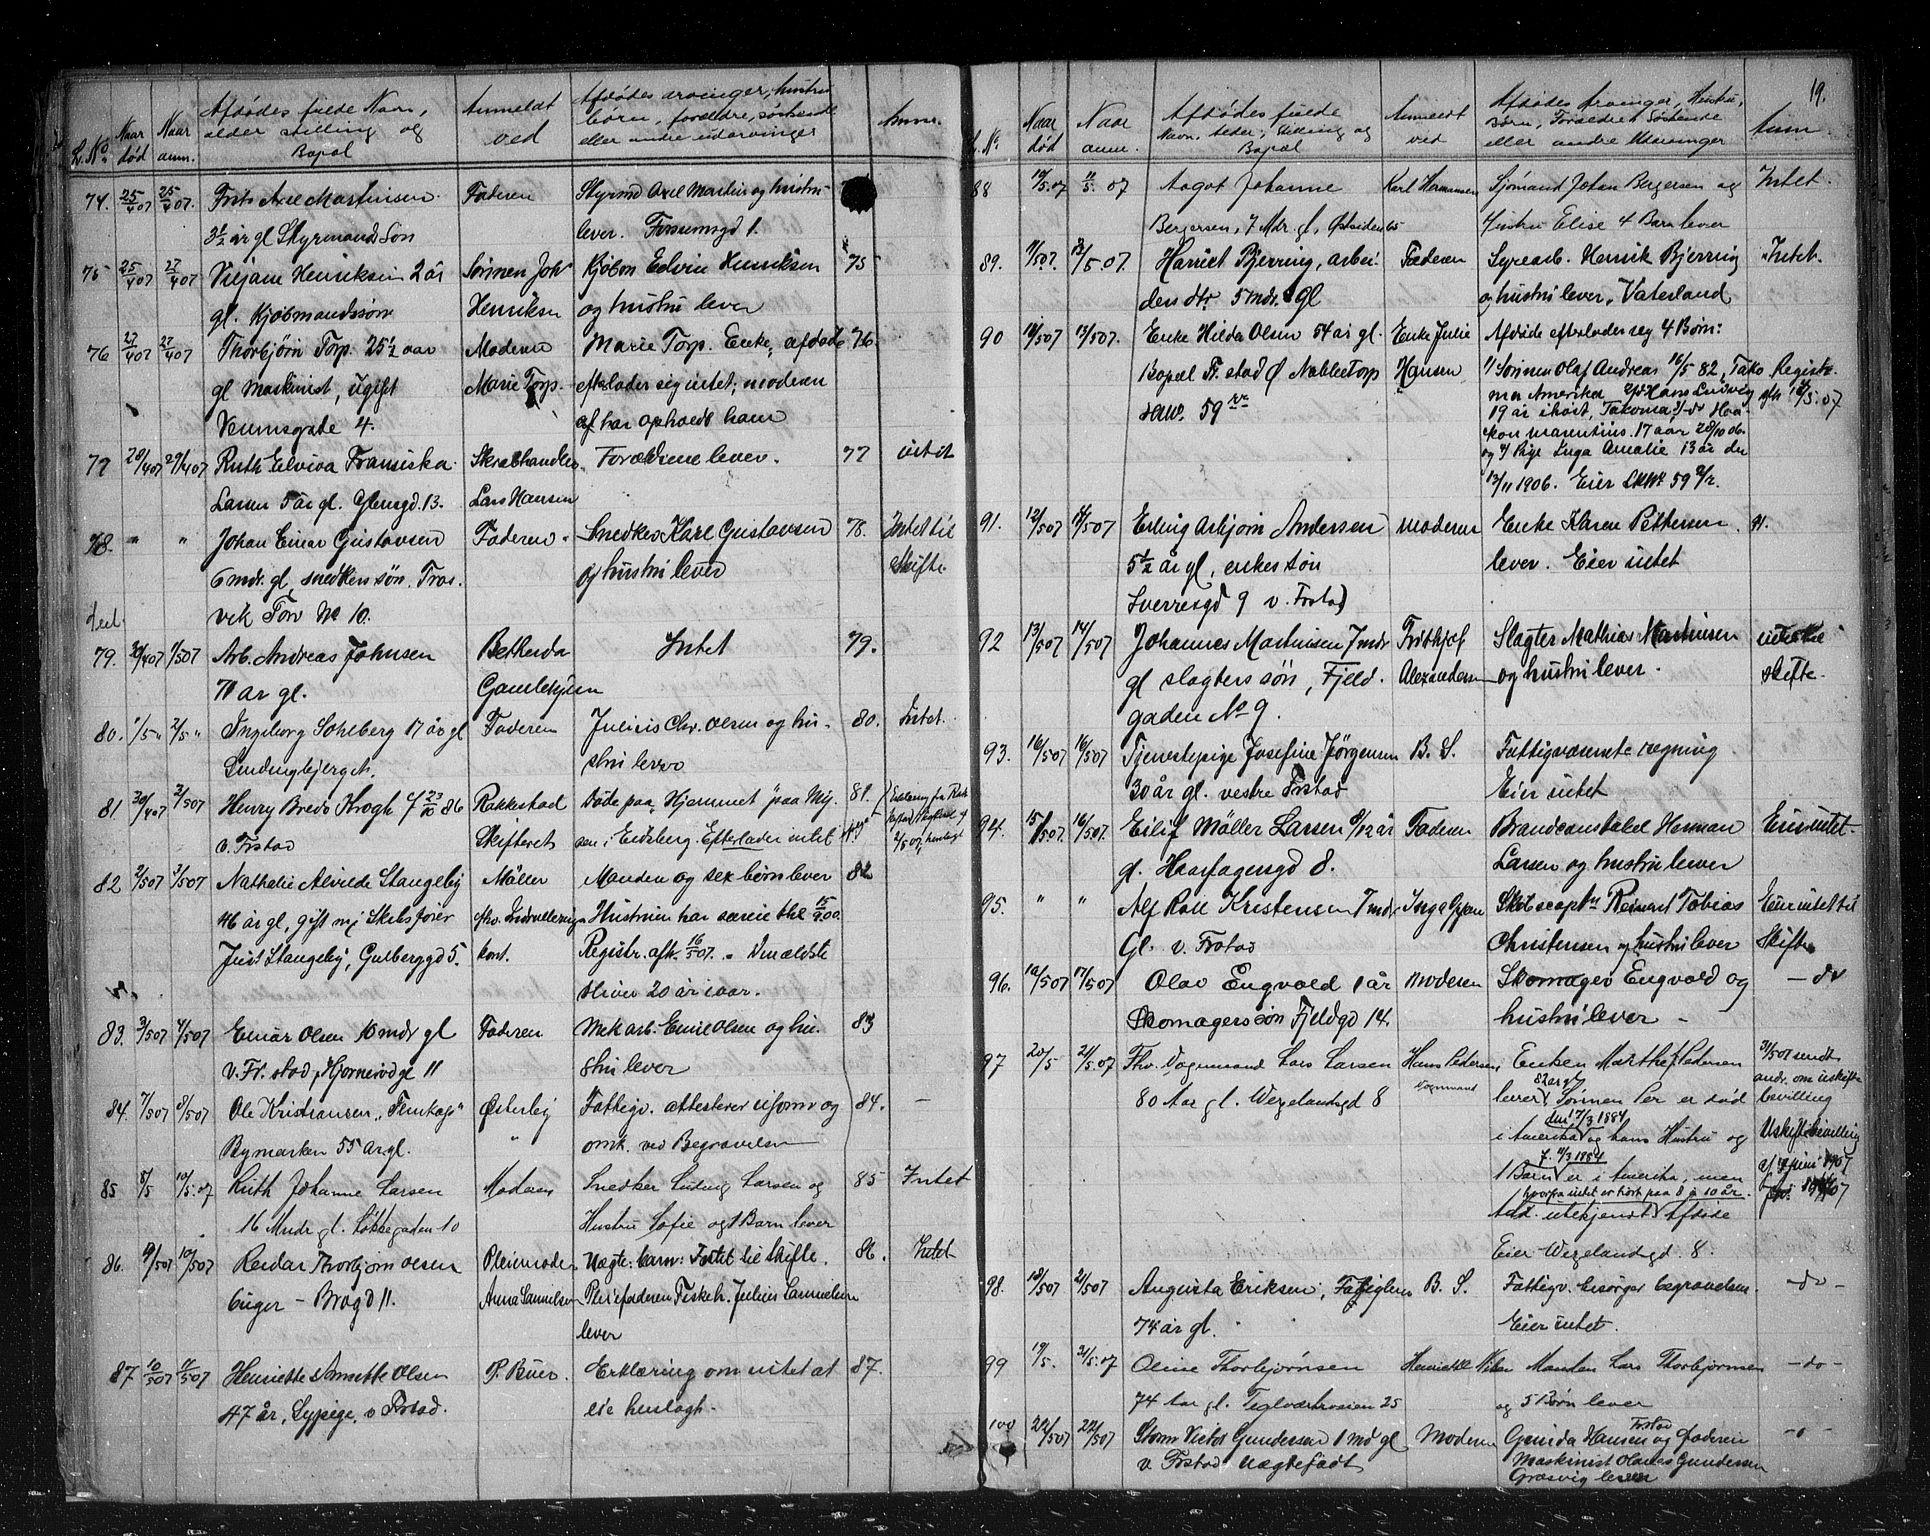 L.No. Naar død Naar anm. Afdødes fulde Navn, alder stilling og Bopæl Anmeldt ved Afdødes arvinger, hustru børn, forældre, søskende eller andre udarvinger Anm.
74. 25/4 07 25/4 07. Frits Axel Martinsen Faderen Styrmd Axel Martins og hustru
3½ år gl Styrmands Søn lever. Fossumsgd 1.
75 25/4 07 27/4 07 Viljam Henriksen 2 år Sønnen Joh Kjøbm Edvin Henriksen 75
gl. Kjøbmandssøn Henriksen og hustru lever
76 27/4 07 27/4 07 Thorbjørn Torp. 25½ aar Moderen Marie Torp. Enke, afdøde 76
gl maskinist, ugift Marie Torp. efterlader sig intet; moderen
Vennusgate 4. af har opholdt ham
77 28/4 07 29/4 07 Ruth Elvira Fransiska Skrabhandler Forældrene lever. 77 intet
Larsen 5 år gl. Glemsgd. 13. Lars Hansen
78. " " Johan Einar Gustavsen Faderen Snedker Karl Gustavsen 78. Intet til
6 mdr. gl, snedkers søn. Tros- og hustru lever Skifte
vik Torv No 10.
79. 30/4 07 1/5 07 Arb. Andreas Johnsen Bethesda Intet 79.
71 ar gl. Gamlehjem
80. 1/5 " 2/5 " Ingeborg Sohlberg 17 år gl Faderen Julius Chr. Olsen og hu- 80. Intet.
Lundingbjerget. stru leve
81. 30/4 07 2/5 07 Henry Bredo Krogh f 23/10 86 Rakkestad Døde paa "Hjemmet" paa My- 81.
v. Frstad Skifteret sen i Eidsberg. Efterlader intet
82 2/5 07 3/5 07 Nathalie Alvilde Stangeby Møller Manden og sex børn lever 82
46 år gl, gift m/ Skibsfører Hustruen har særeie
Just Stangeby, Gulbergsgd 5. kont. Registr. afh. 16/5 07. Den ældste
bliver 20 år iaar.
83. 3/5 07 4/5 07 Einar Olsen 10 mdr gl Faderen Mek arb. Emil Olsen og hu- 83
v. Fr.stad, Hjørnerødge 11 stru lever
84. 7/5 07 8/5 07 Ole Kristiansen "Femtap" Østerby Fattigv. attesterer uform og 84. —
Bymarken 55 år gl. " omk. ved Begravelsen
85 8/5 10/5.07 Ruth Johanne Larsen Madam Snedker Ludvig Larsen og 85 Intet
16 Mndr gl. Løkkegaden 10 Hustru Sofie og 1 Barn lever
86. 9/5 07 10/5 07 Reidar Thorbjørn Olsen Pleiemoder Uægte barn: Intet til skifte. 86. Intet
6 uger - Brogd 11. Anna Samuelsen Pleiefaderen Fiskeh. Julius Samuelsen
lever
87 10/5 07 11/5 07 Henriette Annette Olsen P. Buer. Erklæring om intet at 87.
47 år, Sypige, v Frstad. eie henlagt.
19.
L.No. Naar død Naar anm. Afdødes fulde Navn, alder, Stilling og Bopæl Anmeldt ved Afdødes Arvinger, Hustru, Børn, Forældre Søskende eller andre Udarvinger Anm
88 10/5.07 11/5. 07 Aagot Johanne Karl Hermansen Sjømand Johan Bergersen og Intet.
Bergersen, 7 Mdr. gl, Østsiden 65 Hustru Elise 4 Barn lever
89. 11/5 07. 13/5 07. Harriet Bjerring, arbei- Faderen Syrearb. Henrik Bjerring Intet.
ders dtr 5 mdr. gl og hustru lever, Vaterland
90 10/5 07 13/5 07. Enke Hilda Olsen 54 år gl. Enke Julie Afdøde efterlader seg 4 Børn:
Bopæl Fr.stad Ø Nabbetorp Hansen 1/ Sønnen Olaf Andreas 16/5 82, Tako- Registr.
59 ma Amerika 2/ Hans Ludvig afh 14/5. 07
19 år i høst, Takoma 3/ Haa-
kon Marentius. 17 aar 28/10 06.
og 4/ Pige Inga Amalie 13 år den
13/11 1906. Eier
91. 12/5 07 14/5 07 Erling Asbjørn Andersen moderen Enke Karen Pettersen 91.
5½ år gl, enkes søn lever. Eier intet
Sverresgd 9 v. Frstad
92 13/5 07 14/5 07 Johannes Martinsen 7 mdr Fridthjof Slagter Mathias Martinsen intet til
gl slagters søn, Fjeld- Alexandersen og hustru lever. skifte.
gaden No 9.
93. 16/5 07 16/5 07 Tjenestepige Josefine Jørgensen B. S. Fattigvæsenets regning
30 år gl. vestre Frstad Eier intet
94. 15/5 07. 16/5 07. Eilif Møller Larsen 9/12 år Faderen Brandconstabel Herman Eier intet.
gl. Haarfagersgd 8. Larsen og hustru lever
95. " " Alf Rolf Kristensen 7 mdr Inga Skibscaptn Reinert Tobias Eier intet til
Gl. v. Frstad Christensen og hustru lever Skifte
96. 16/5 07 17/5 07 Olav Engvald 1 år moderen Skomager Engvald og — do
Skomagers søn Fjeldgd 14. hustru lever -
97 20/5 21/5.07 Fhv. Vognmand Lars Larsen Hans Pedersen Enken Marthe Pedersen 31/5 07 sendt
80 Aar gl. Wezelandsgd 8 Vognmand 82 ar gl andr. om uskifte
lever, Sønnen Per er død bevilling
den 17/3 1884
i Amerika og hans Hustru og Uskiftebevilling
f. 4/3 1884
1 Barn er i Amerika, men af Juni 1907
hvorfra intet er hørt paa 8 à 10 år.
Adr. ubekjendt. Afdøde
Eier Wezelandsgd. 8.
98. 18/5 07 21/5 07 Augusta Eriksen, Fattiglem B. S. Fattigv. besørger begravelsen - do -
74 år gl. Eier intet.
99 19/5. 21/5.07 Oline Thorbjørnsen Henriette Manden Lars Thorbjørnsen - do -
74 Aar gl. Teglværksveien 25 og 5 Børn lever
100 22/5 07 22/5 07 Storm Victor Gundersen 1 md gl Moderen Gunda Hansen Frstad og Faderen - o -
v. Frstad Uægtefødt Maskinist Olaves Gundersen
Græsvig lever